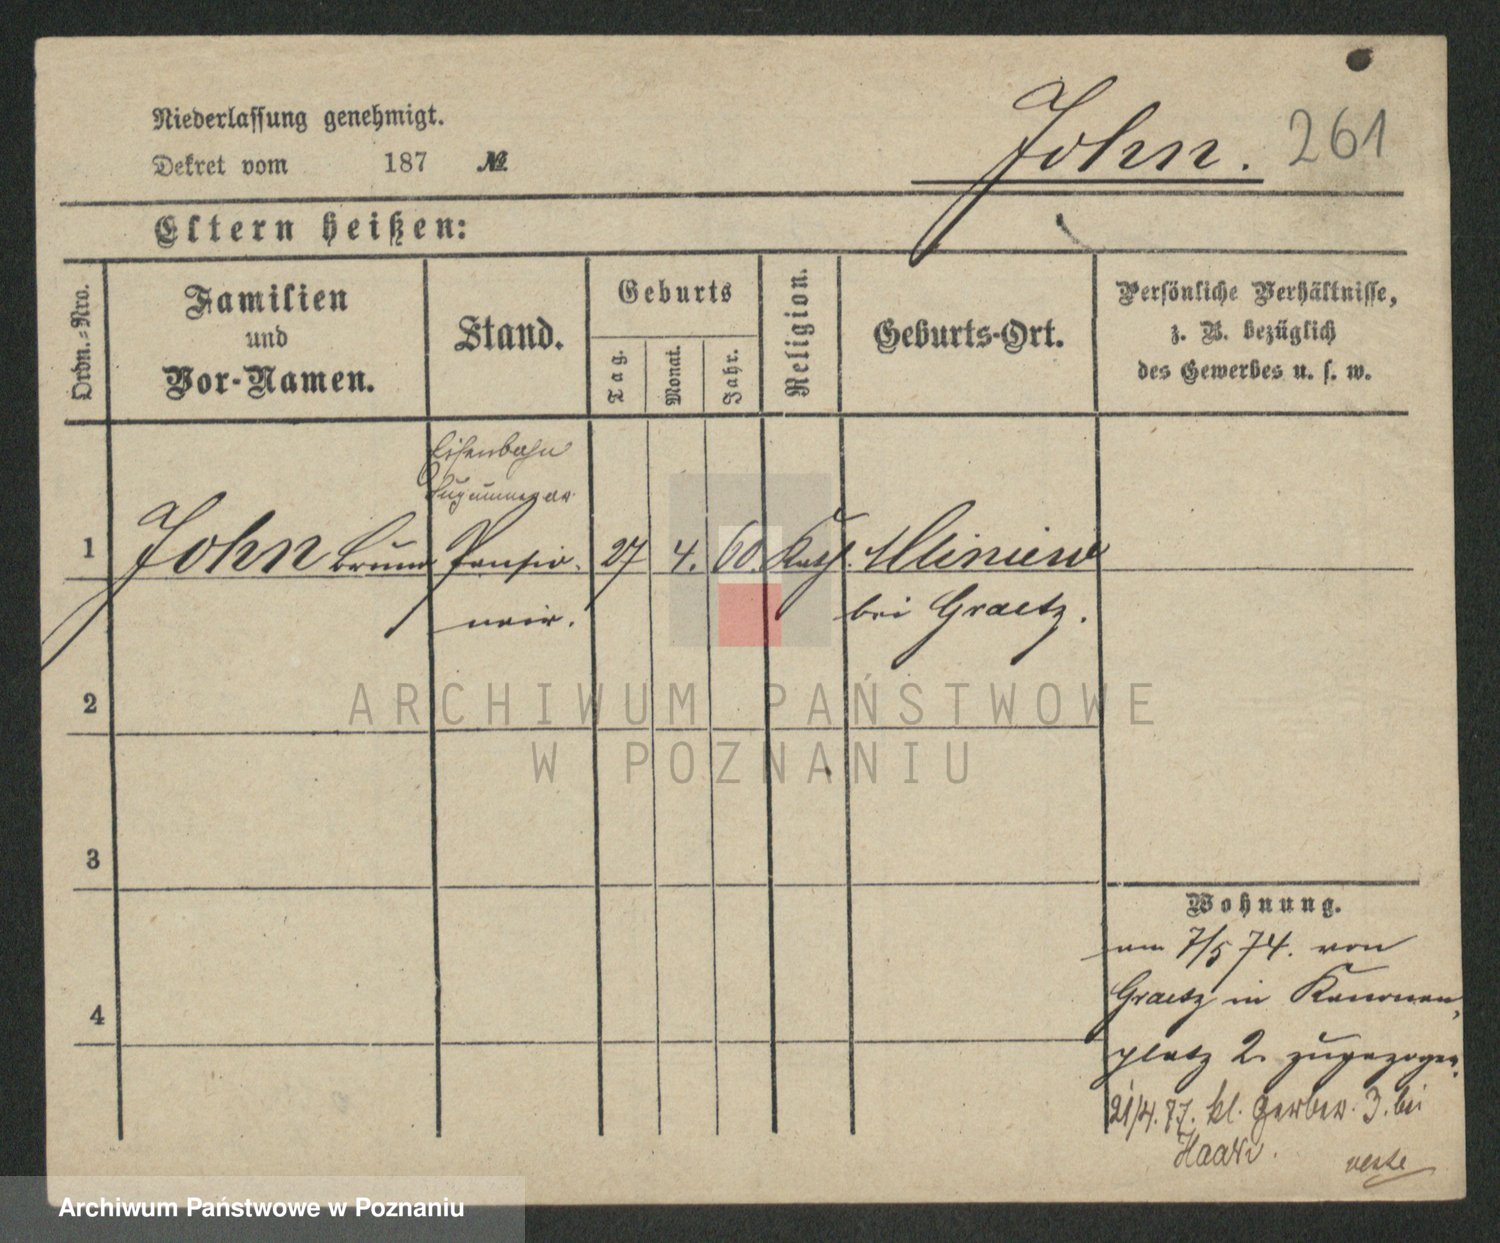 Niederlassung genehmigt.
Dekret vom 187 №
John. 261
Eltern heißen:
Ordn.-Nro.
Familien
und
Vor-Namen.
Stand.
Geburts
Tag.
Monat.
Jahr.
Religion.
Geburts-Ort.
Persönliche Verhältnisse,
z. B. bezüglich
des Gewerbes u. s. w.
Eisenbahn
1 John Bruno Pensio- 27 4. 60. Kath. Miniew
neir. bei Graetz.
2
3
4
Wohnung.
am 7/5 74. von
Graetz in Kanonen,
platz 2. zugezogen.
21/4. 87. kl. Gerber. 3. bei
verte
ARCHIWUM PAŃSTWOWE
W POZNANIU
Archiwum Państwowe w Poznaniu